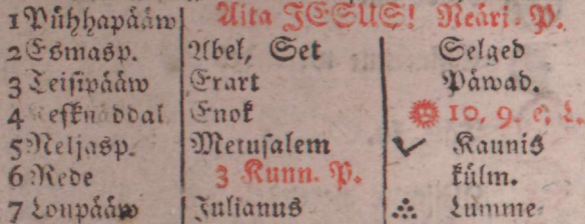 1 Pühhapääw Aita JESUS! Neäri. P.
2 Esmasp. Abel, Set Selged
3 Teisipääw Erart Päwad.
4 Kesknäddal Enok 10, 9. e, L.
5 Neljasp. Metusalem Kaunis
6 Rede 3 Kunn. P. külm.
7 Loupääw Julianus Lumme-